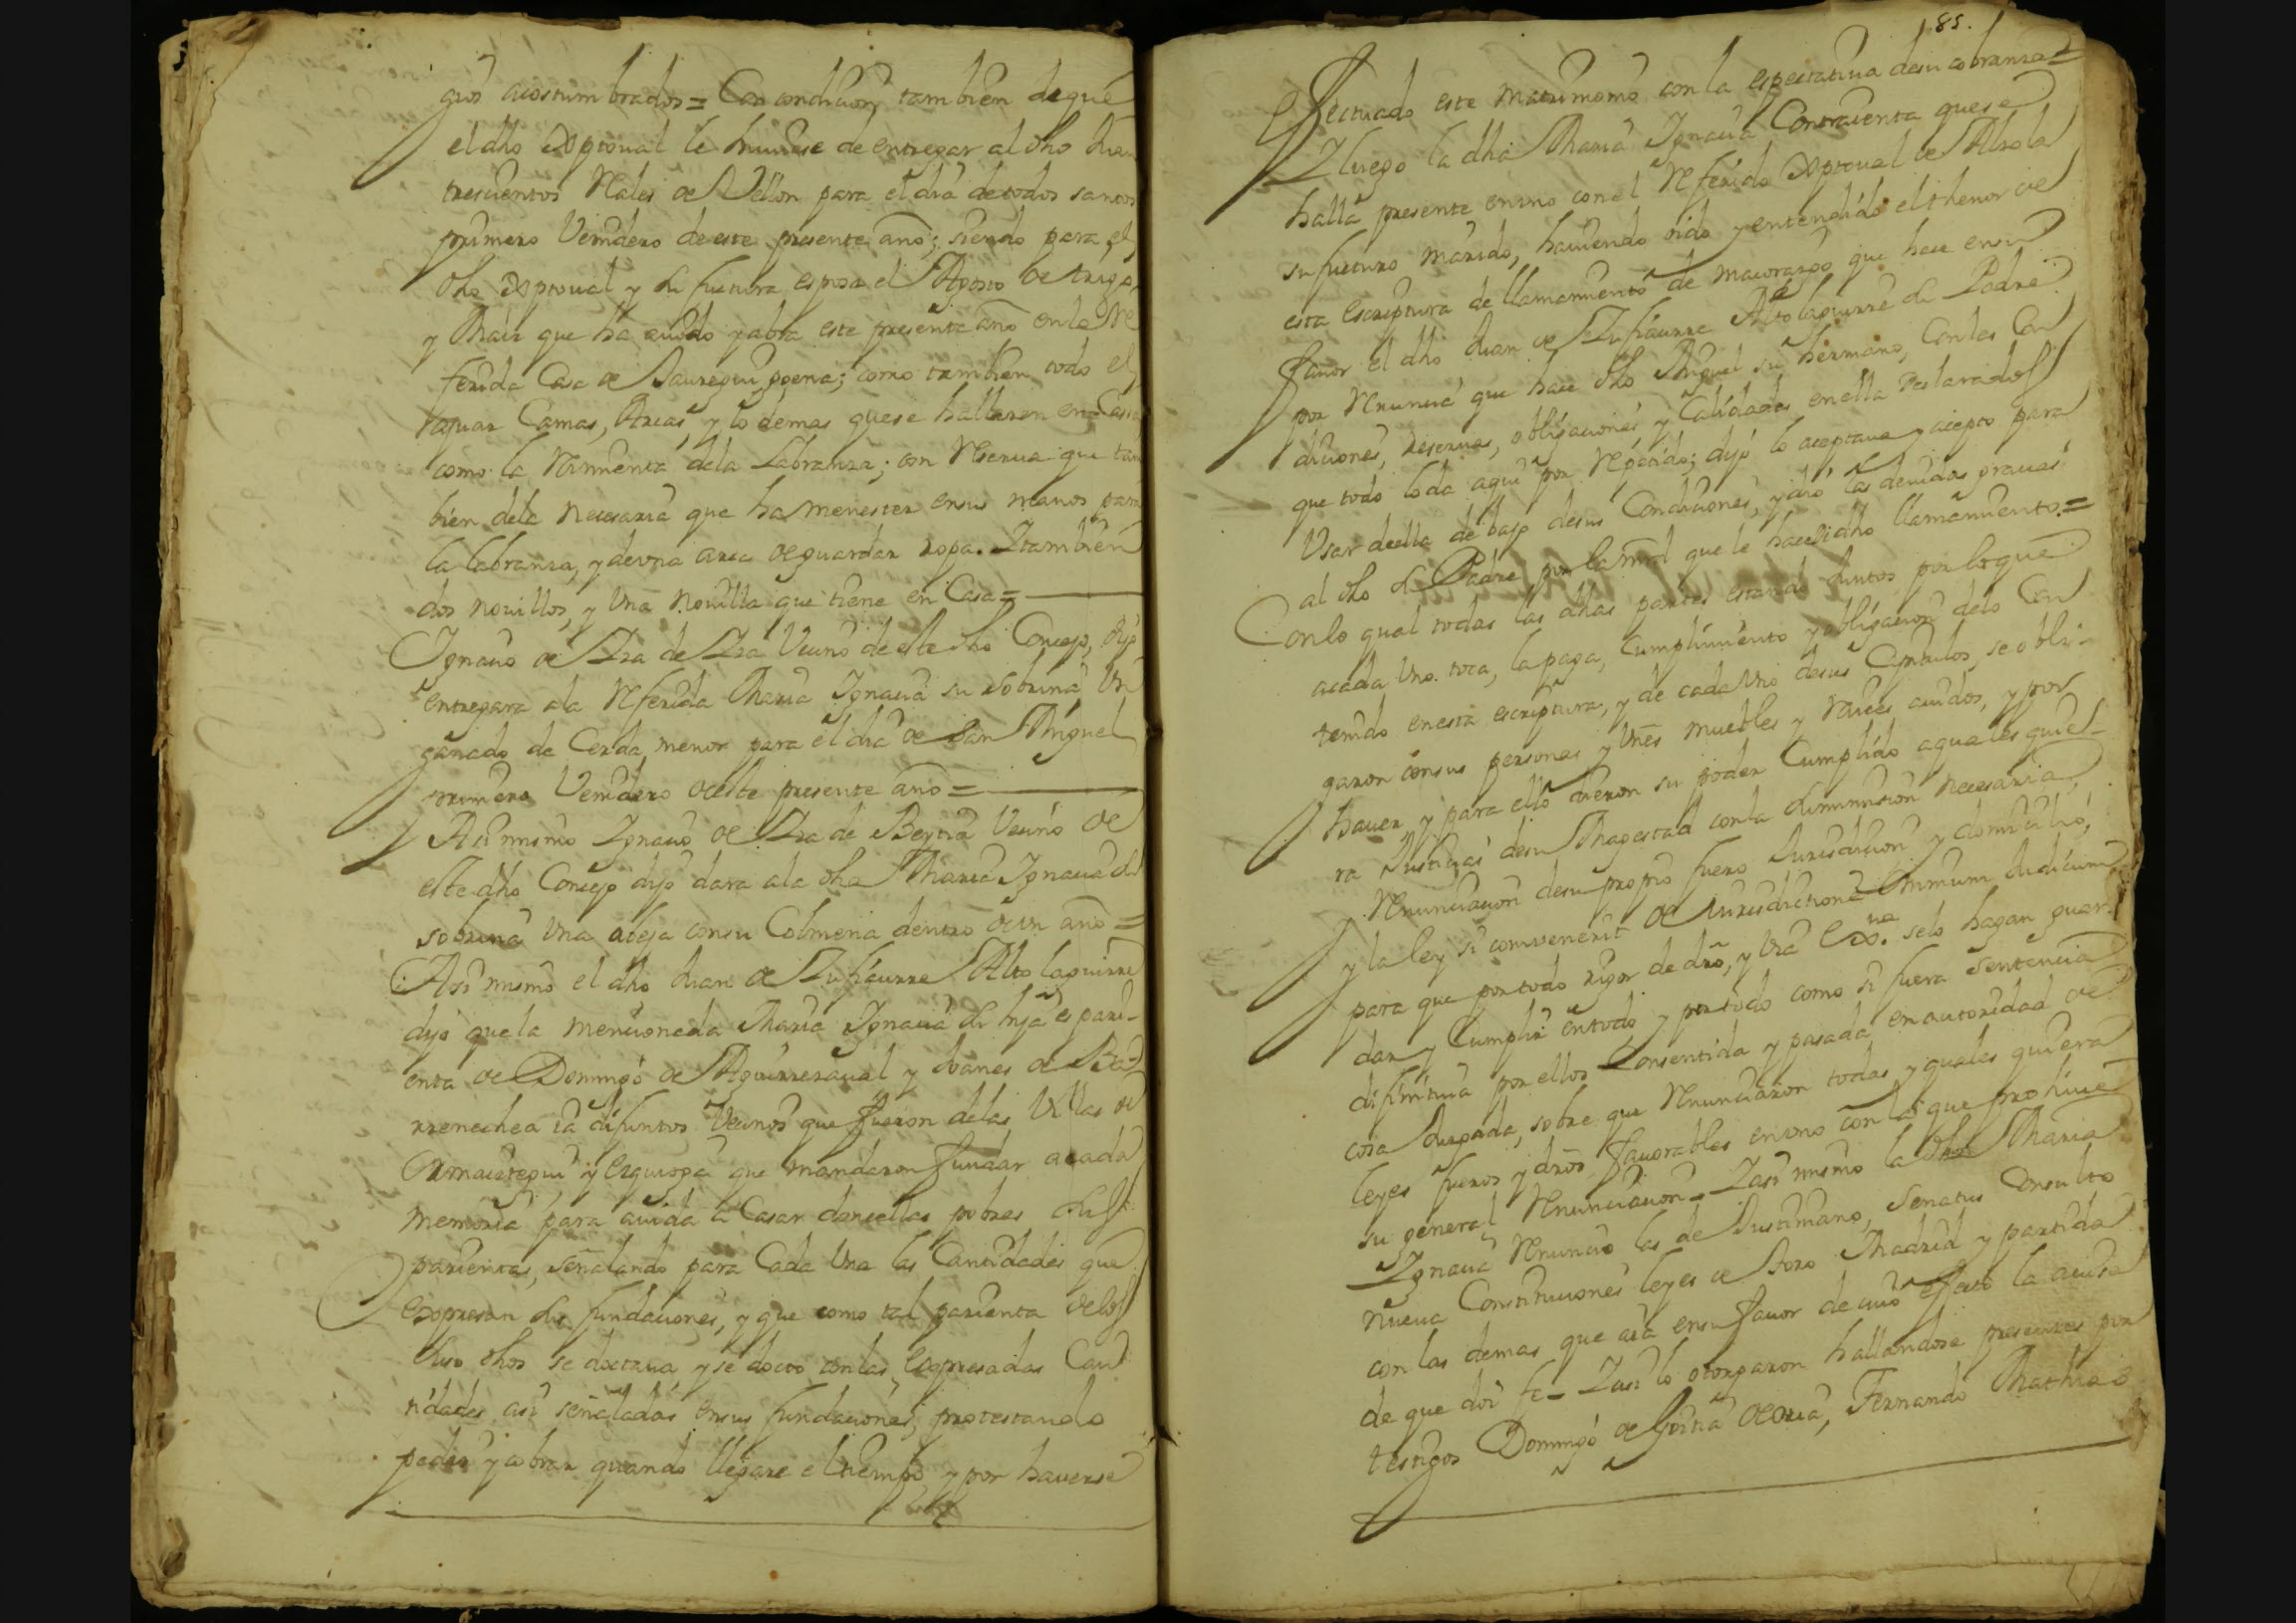 gros acostumbrados = Con condicion tambien de que
el dho Xptoual le huuiese de entregar al dho Juan
trescientos Reales de Vellon para el dia de todos santos
primero Venidero de este presente año; siendo para el
dho Xptoual y su futura esposa el Agosto de trigo,
y Maiz que ha auido y abra este presente año en la Re
ferida Casa de Jauregui goena; como tambien todo el
ajuar Camas, Arcas, y lo demas que se hallaren en Casa,
como la Rementa dela Labranza; con Reserua que tam
bien dela necesaria que ha menester en sus manos para
la labranza, y de vna arca de guardar ropa. Y tambien
dos nouillos, y Vna Nouilla que tiene en Casa =
Ignacio de Lza de Lza Vecino de este dho Concejo, dijo
entregara ala Referida Maria Ignacia su sobrina Vn
ganado de Cerda menor para el dia de San Miguel
primero Venidero de este presente año =
Asi mismo Ignacio de Lza de Beytia Vecino de
este dho Concejo dijo dara ala dha Maria Ignacia su
sobrina Vna abeja con su Colmena dentro de vn año =
Asi mismo el dho Juan de Zufiaurre Altolaguirre
dijo que la mencionada Maria Ignacia su hija es pari-
enta de Domingo de Aguirrezaual y Joanes de Ba
rrenechea ia difuntos Vecinos que fueron delas Villas de
Ormaiztegui y Ezquioga que mandaron fundar a cada
memoria para aiuda a Casar doncellas pobres sus
parientas, señalando para Cada Vna las Cantidades que
Expresan sus fundaciones, y que como tal parienta delos
suso dhos se doctaua, y se docto con las Expresadas Can
tidades asi señaladas en sus fundaciones, protestando
pedir y cobrar quando llegare el tiempo, y por hauerse
85.
Efectuado este matrimonio con la espectatiua de su cobranza =
Y luego la dha Maria Ignacia Contraienta que se
halla presente en vno con el Referido Xptoual de Alzola
su futuro marido, hauiendo oido y entendido el thenor de
esta escriptura de llamamiento de maiorazgo que hace en su
fauor el dho Juan de Zufiaurre Altolaguirre su Padre
por Renuncia que hace dho Miguel su hermano, Con las Con
diciones, Reseruas, obligaciones, y Calidades en ella declarados
que todo lo da aqui por Repetido; dijo lo aceptaua y acepto para
Vsar de ella debajo de sus Condiciones, y dio las deuidas gracias
al dho su Padre por la mrd que le hace dicho llamamiento. =
Con lo qual todas las dhas partes estando Juntos por lo que
a cada Vno. toca, la paga, Cumplimiento y obligacion delo Con
tenido en esta escriptura, y de cada Vno de sus Capitulos, se obli-
garon con sus personas y Vnes muebles y raices auidos, y por
hauer, y para ello dieron su poder Cumplido a quales quie-
ra Justicias de su Magestad con la sumission necesaria,
Renunciacion de su propio fuero Jurisdicion y domicilio,
y la ley si conuenerit de Jurisdictione Omnium Judicum
para que por todo rigor de dro, y Via Exua. se lo hagan guar
dar y Cumplir en todo, y por todo como si fuera sentencia
difinitiua por ellos Consentida y pasada en autoridad de
cosa Juzgada, sobre que Renunciaron todas y quales quiera
leyes fueros y dros fauorables en vno con la que prohiue
su general Renunciacion = Y asi mismo la dha Maria
Ignacia Renuncio las de Justiniano, Senatus Consulto
nueua Constituciones leyes de Toro Madrid y partida
con las demas que ai a en su fauor de cuio Efecto la auise
de que doi fe = Y asi lo otorgaron hallandose presentes por
testigos Domingo de Goitia de oria, Fernando Mathias